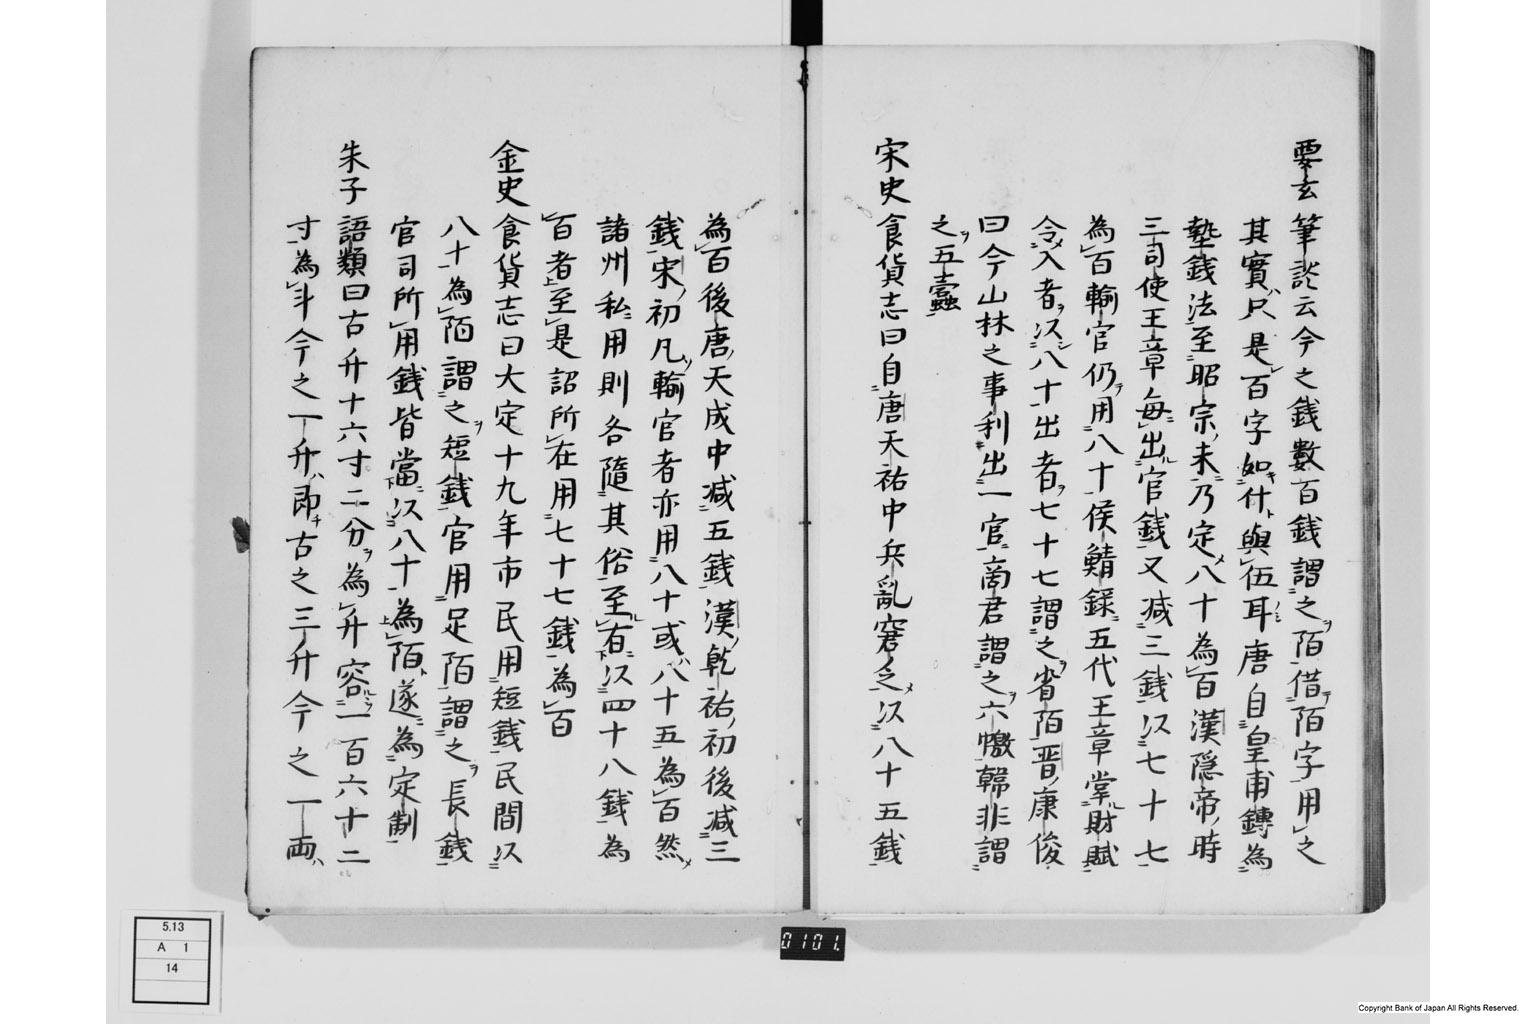 要玄筆談云今之銭數百銭謂之陌借陌字用之
其實只是百字如什與伍耳唐自皇甫鏄為
墊銭法至昭宗末乃定八十為百漢隠帝時
三司使王章毎出官銭又减三銭以七十七
為百輸官仍用八十侯鯖録五代王章掌財賦
令入者以八十出者七十七謂之省陌晋康俊
曰今山林之事利出一官商君謂之六蝎韓非謂
之五蠹
宋史食貨志曰自唐天祐中兵亂窘乏以八十五銭
為百後唐天成中减五銭漢乾祐初後减三
銭宋初凡輸官者亦用八十或八十五為百然
諸州私用則各隨其俗至有以四十八銭為
百者至是詔所在用七十七銭為百
金史食貨志曰大定十九年市民用短銭民間以
八十為陌謂之短銭官用足陌謂之長銭
官司所用銭皆當以八十為陌遂為定制
朱子語類曰古升十六寸二分為升容一百六十二
寸為斗今之一升即古之三升今之一両
5.13
A 1
14
0101.
Copyright Bank of Japan All Rights Reserved.